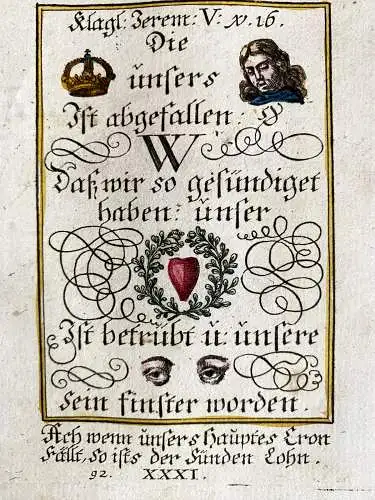 Klagl: Jerem: V: v. 16.
Die
ünsers
Ist abgefallen:
W
Daß wir so gesündiget
haben: ünser
Ist betrübt ü: ünsere
sein finster worden.
Ach wenn ünsers Hauptes Cron
Fällt, so ists der Sünden Lohn.
92. XXXI.